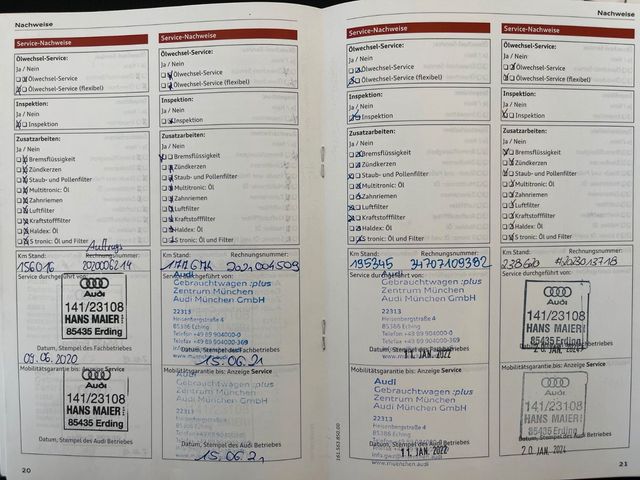 Nachweise
Service-Nachweise
Ölwechsel-Service:
Ja / Nein
Ölwechsel-Service
Ölwechsel-Service (flexibel)
Inspektion:
Ja / Nein
Inspektion
Zusatzarbeiten:
Ja / Nein
Bremsflüssigkeit
Zündkerzen
Staub- und Pollenfilter
Multitronic: Öl
Zahnriemen
Luftfilter
Kraftstofffilter
Haldex: Öl
S tronic: Öl und Filter
Auftrags
Km Stand: Rechnungsnummer:
156016
Service durchgeführt von:
Audi
141/23108
HANS MAIER
85435 Erding
Datum, Stempel des Fachbetriebes
09.06.2020
Mobilitätsgarantie bis: Anzeige Service
Audi
141/23108
HANS MAIER
85435 Erding
Datum, Stempel des Audi Betriebes
20
Service-Nachweise
Ölwechsel-Service:
Ja / Nein
Ölwechsel-Service
Ölwechsel-Service (flexibel)
Inspektion:
Ja / Nein
Inspektion
Zusatzarbeiten:
Ja / Nein
Bremsflüssigkeit
Zündkerzen
Staub- und Pollenfilter
Multitronic: Öl
Zahnriemen
Luftfilter
Kraftstofffilter
Haldex: Öl
S tronic: Öl und Filter
Km Stand: Rechnungsnummer:
Audi
Gebrauchtwagen :plus
Zentrum München
Audi München GmbH
22313
Heisenbergstraße 4
85386 Eching
Telefon +49 89 904000-0
Telefax +49 89 904000-369
Datum, Stempel des Fachbetriebes
15.06.21
Mobilitätsgarantie bis: Anzeige Service
Audi
Gebrauchtwagen :plus
Zentrum München
Audi München GmbH
22313
Heisenbergstraße 4
85386 Eching
Telefon +49 89 904000-0
Telefax +49 89 904000-369
Datum, Stempel des Audi Betriebes
15.06.21
Nachweise
Service-Nachweise
Ölwechsel-Service:
Ja / Nein
Ölwechsel-Service
Ölwechsel-Service (flexibel)
Inspektion:
Ja / Nein
Inspektion
Zusatzarbeiten:
Ja / Nein
Bremsflüssigkeit
Zündkerzen
Staub- und Pollenfilter
Multitronic: Öl
Zahnriemen
Luftfilter
Kraftstofffilter
Haldex: Öl
S tronic: Öl und Filter
Km Stand: Rechnungsnummer:
195345 34707109382
Audi
Gebrauchtwagen :plus
Zentrum München
Audi München GmbH
22313
Heisenbergstraße 4
85386 Eching
Telefon +49 89 904000-0
Telefax +49 89 904000-369
Datum, Stempel des Fachbetriebes
11. JAN. 2022
Mobilitätsgarantie bis: Anzeige Service
Audi
Gebrauchtwagen :plus
Zentrum München
Audi München GmbH
22313
Heisenbergstraße 4
85386 Eching
Telefon +49 89 904000-0
Telefax +49 89 904000-369
Datum, Stempel des Audi Betriebes
11. JAN. 2022
www.muenchen.audi
161.563.850.00
Service-Nachweise
Ölwechsel-Service:
Ja / Nein
Ölwechsel-Service
Ölwechsel-Service (flexibel)
Inspektion:
Ja / Nein
Inspektion
Zusatzarbeiten:
Ja / Nein
Bremsflüssigkeit
Zündkerzen
Staub- und Pollenfilter
Multitronic: Öl
Zahnriemen
Luftfilter
Kraftstofffilter
Haldex: Öl
S tronic: Öl und Filter
Km Stand: Rechnungsnummer:
Service durchgeführt von:
Audi
141/23108
HANS MAIER
85435 Erding
Datum, Stempel des Fachbetriebes
Mobilitätsgarantie bis: Anzeige Service
Audi
141/23108
HANS MAIER
85435 Erding
Datum, Stempel des Audi Betriebes
21